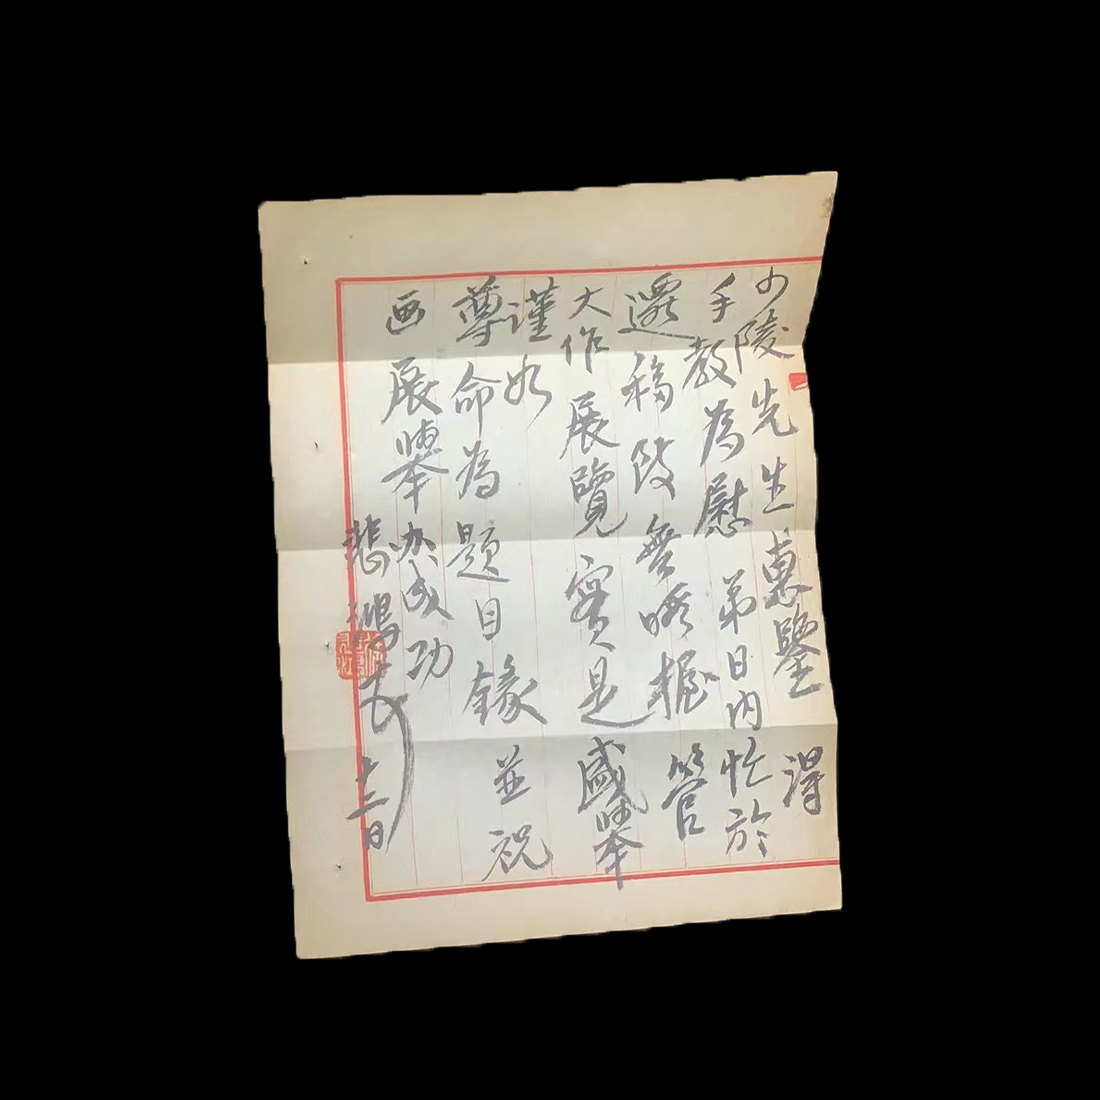 少陵先生惠鑒 得
手教為慰 弟日内忙於
遷移致無暇握管
大作展覽實是盛舉
謹如
尊命為題目錄 並祝
画展舉办成功
悲鴻 十二日